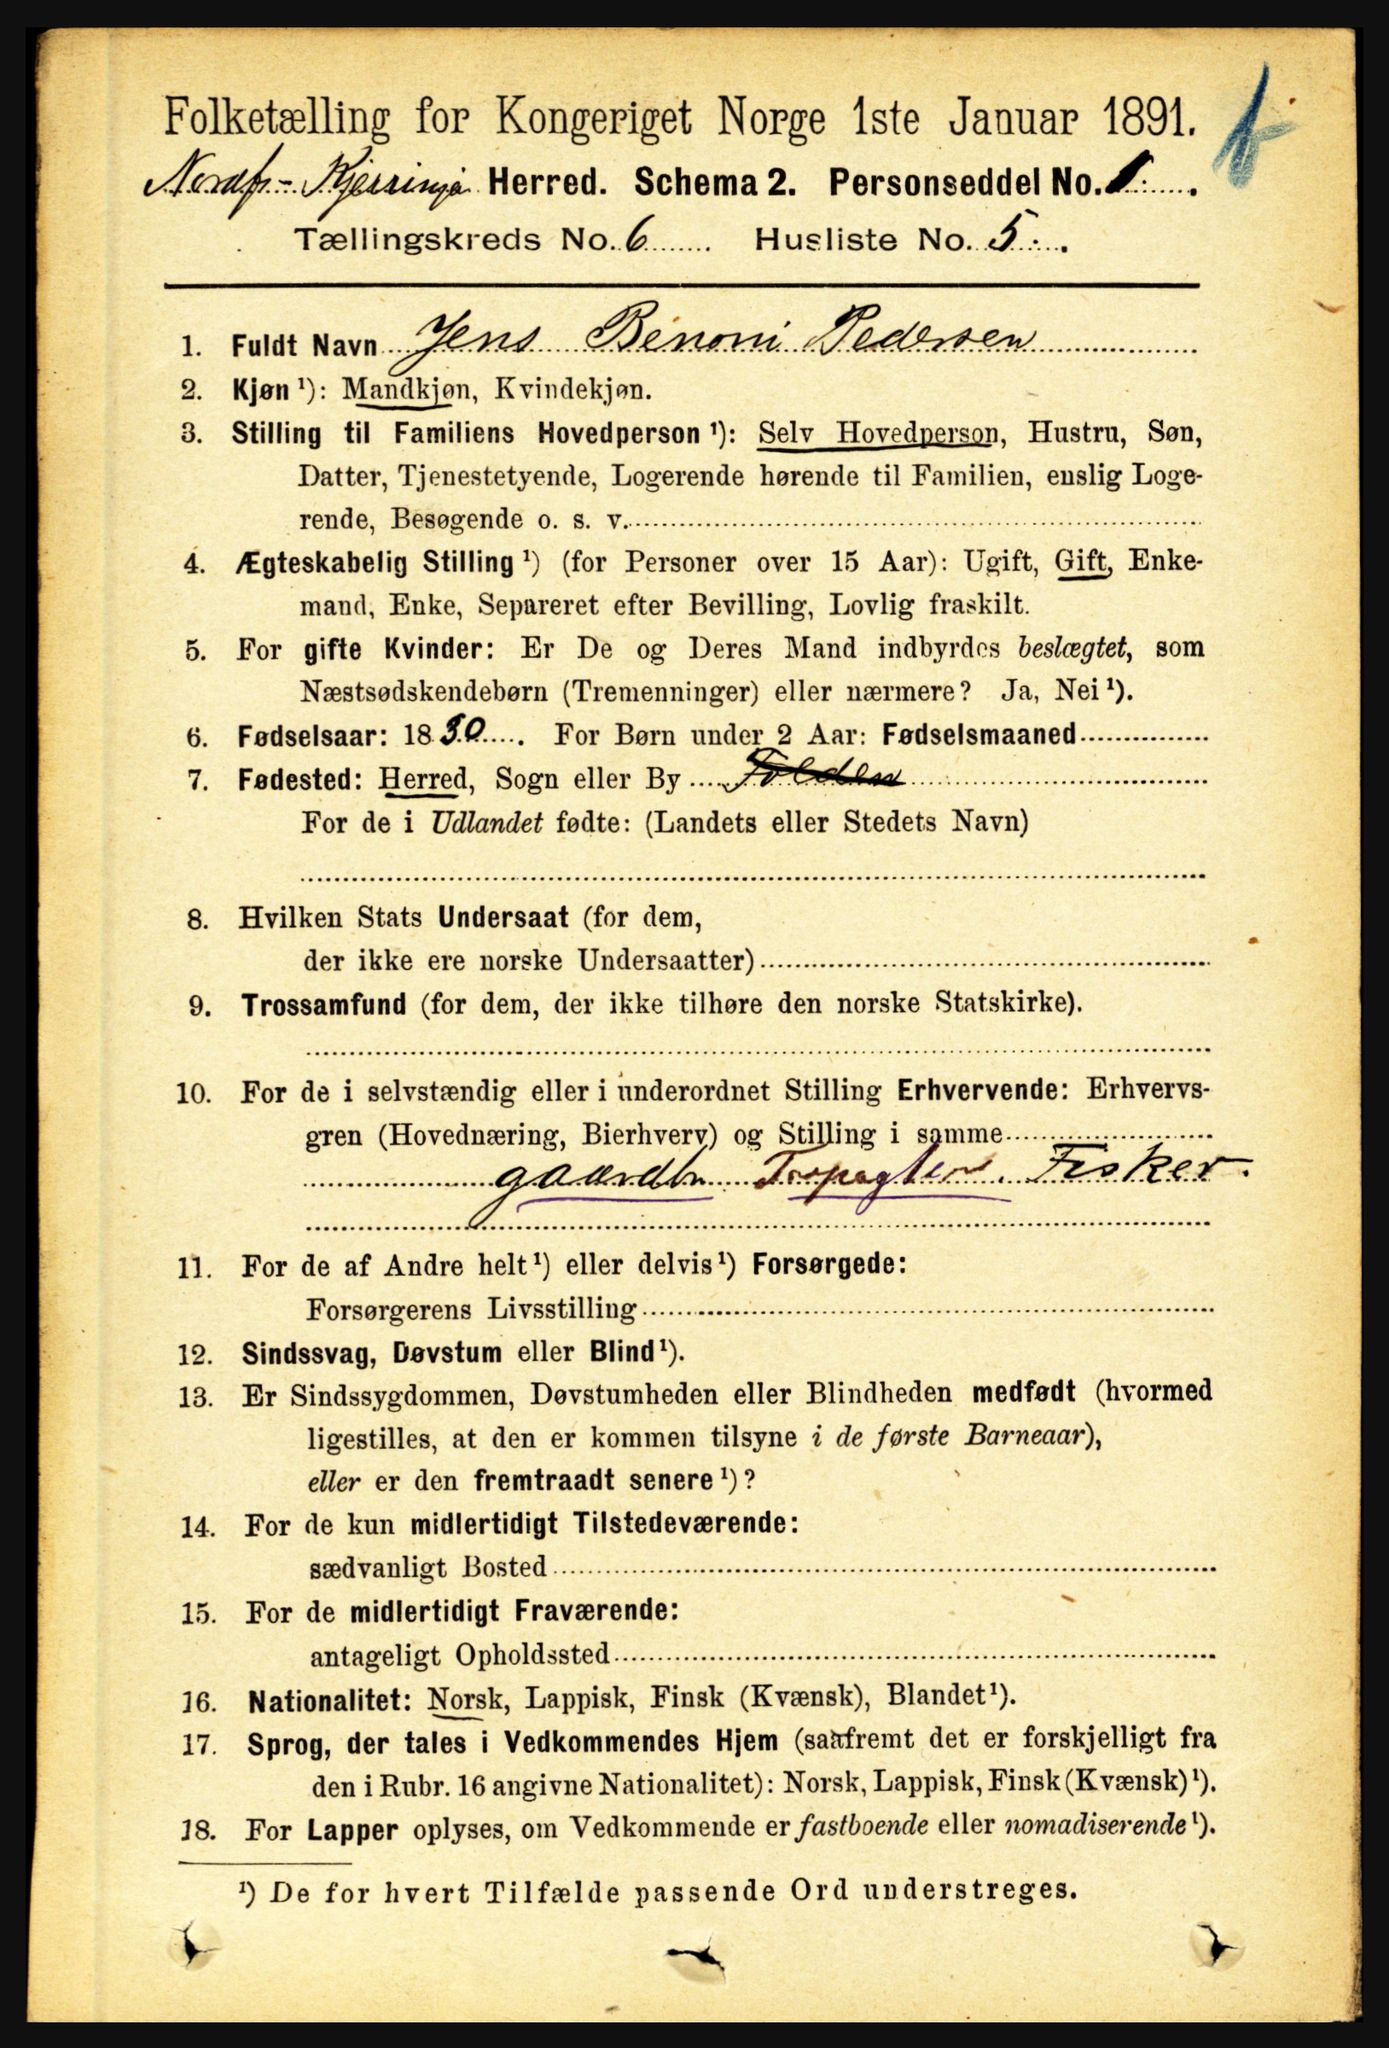 Folketælling for Kongeriget Norge 1ste Januar 1891.
Nordf.- Kjerringø Herred. Schema 2. Personseddel No. 1.
Tællingskreds No. 6 Husliste No. 5.
1. Fuldt Navn Jens Benoni Pedersen
2. Kjøn ¹): Mandkjøn, Kvindekjøn.
3. Stilling til Familiens Hovedperson ¹): Selv Hovedperson, Hustru, Søn,
Datter, Tjenestetyende, Logerende hørende til Familien, enslig Loge-
rende, Besøgende o. s. v.
4. Ægteskabelig Stilling ¹) (for Personer over 15 Aar): Ugift, Gift, Enke-
mand, Enke, Separeret efter Bevilling, Lovlig fraskilt.
5. For gifte Kvinder: Er De og Deres Mand indbyrdes beslægtet, som
Næstsødskendebørn (Tremenninger) eller nærmere? Ja, Nei ¹).
6. Fødselsaar: 1830. For Børn under 2 Aar: Fødselsmaaned
7. Fødested: Herred, Sogn eller By Folden
For de i Udlandet fødte: (Landets eller Stedets Navn)
8. Hvilken Stats Undersaat (for dem,
der ikke ere norske Undersaatter)
9. Trossamfund (for dem, der ikke tilhøre den norske Statskirke).
10. For de i selvstændig eller i underordnet Stilling Erhvervende: Erhvervs-
gren (Hovednæring, Bierhverv) og Stilling i samme
gaardbr. Forpagter. Fisker.
11. For de af Andre helt ¹) eller delvis ¹) Forsørgede:
Forsørgerens Livsstilling
12. Sindssvag, Døvstum eller Blind ¹).
13. Er Sindssygdommen, Døvstumheden eller Blindheden medfødt (hvormed
ligestilles, at den er kommen tilsyne i de første Barneaar),
eller er den fremtraadt senere ¹)?
14. For de kun midlertidigt Tilstedeværende:
sædvanligt Bosted
15. For de midlertidigt Fraværende:
antageligt Opholdssted
16. Nationalitet: Norsk, Lappisk, Finsk (Kvænsk), Blandet ¹).
17. Sprog, der tales i Vedkommendes Hjem (saafremt det er forskjelligt fra
den i Rubr. 16 angivne Nationalitet): Norsk, Lappisk, Finsk (Kvænsk) ¹).
18. For Lapper oplyses, om Vedkommende er fastboende eller nomadiserende ¹).
¹) De for hvert Tilfælde passende Ord understreges.